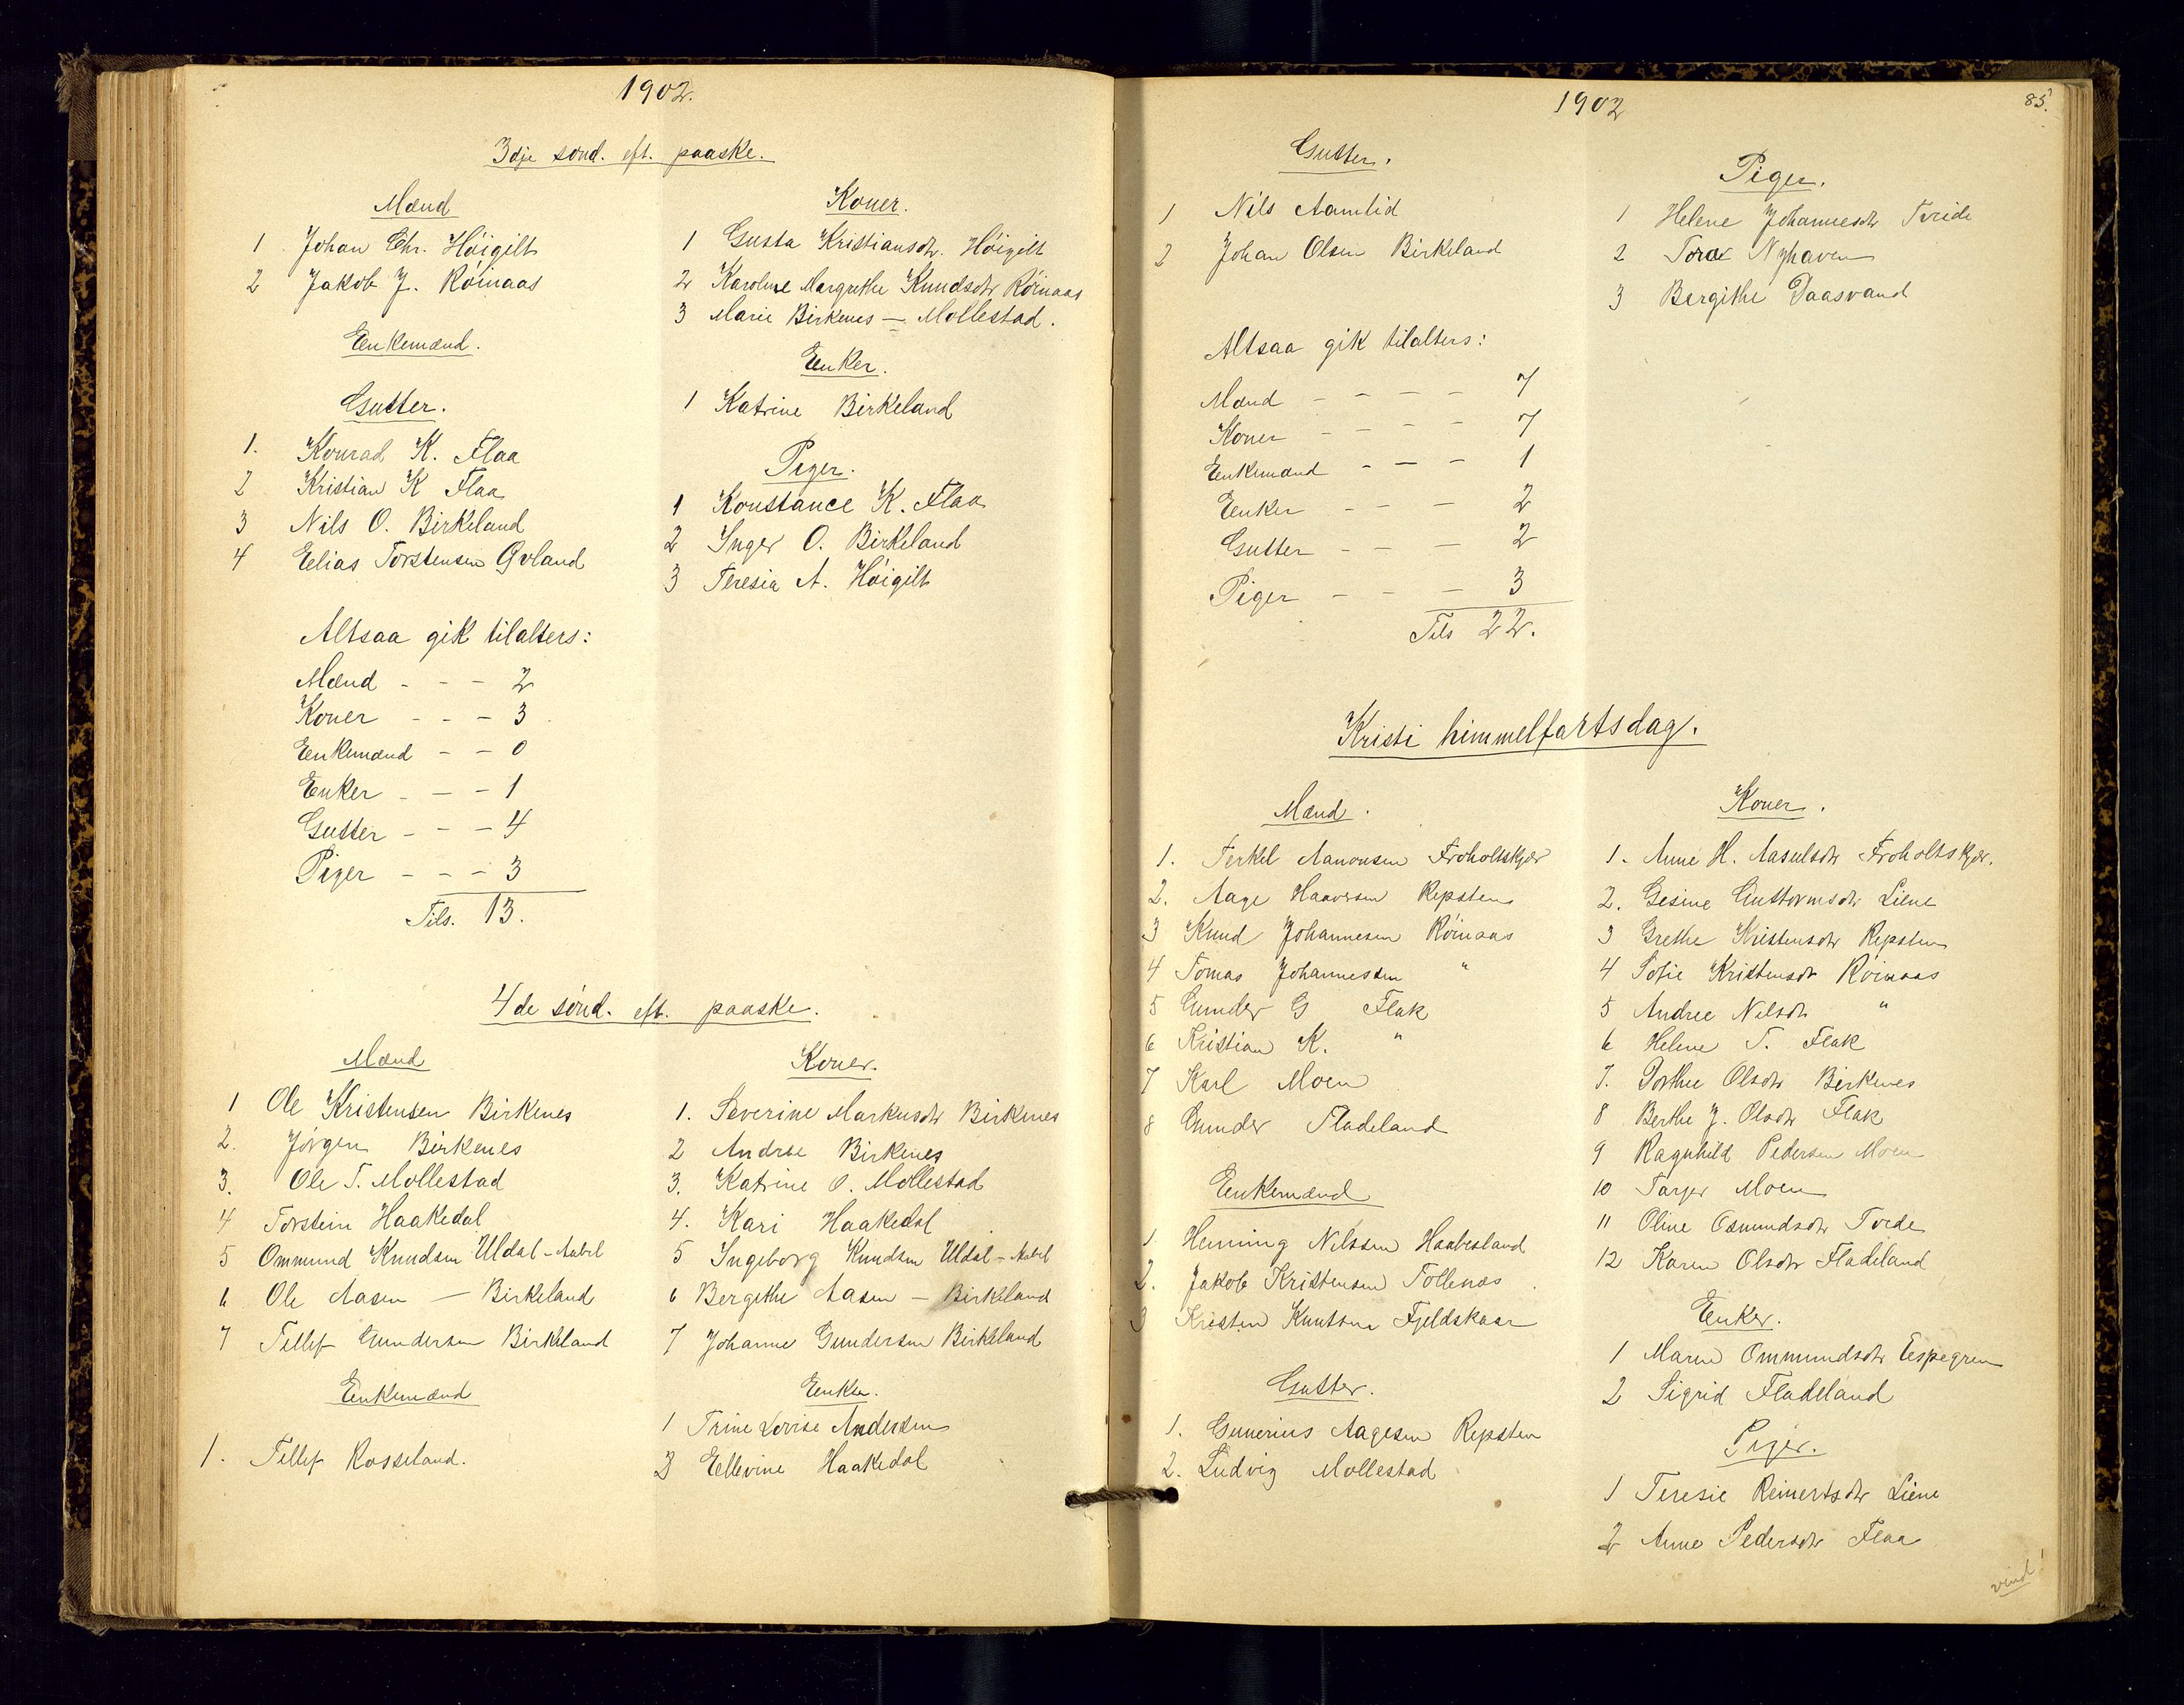 1902.
3dje sønd. eft. paaske.
Mænd
1 Johan Chr. Høigilt
2 Jakob J. Røinaas
Eenkemænd.
Gutter.
1. Konrad K. Flaa
2 Kristian K Flaa
3 Nils O. Birkeland
4 Eelias Torstensen Øvland
Koner.
1 Gusta Kristiansdtr. Høigilt
2 Karoline Margrethe Knudsdtr Røinaas
3 Marie Birkenes — Mollestad.
Eenker.
1 Katrine Birkeland
Piger.
1 Konstance K. Flaa
2 Inger O. Birkeland
3 Teresia A. Høigilt
Altsaa gik tilalters:
Mænd - - - 2
Koner - - - 3
Eenkemænd - - 0
Enker - - - 1
Gutter - - - 4
Piger - - - 3
Tils. 13.
4de sønd. eft. paaske.
Mænd
1 Ole Kristensen Birkenes
2. Jørgen Birkenes
3. Ole T. Mollestad
4 Torstein Haakedal
5 Ommund Knudsen Uldal - Aabel
6 Ole Aasen — Birkeland
7 Tellef Gundersen Birkeland
Eenkemænd
1. Tellef Rosseland.
Koner.
1. Severine Markusdtr Birkenes
2 Andrae Birkenes
3. Katrine O. Mollestad
4. Kari Haakedal
5 Ingeborg Knudsen Uldal - Aabel
6 Bergithe Aasen — Birkeland
7 Johanne Gundersen Birkeland
Eenker.
1 Trine Lovise Andersen
2 Eellevine Haakedal
1902
85.
Gutter.
1 Nils Aamlid
2 Johan Olsen Birkeland
Piger.
1 Helene Johannesdtr
2 Tora Nyhaven
3 Bergithe Daasvand
Altsaa gik tilalters:
Mænd - - - - 7
Koner - - - - 7
Eenkemænd - - - 1
Eenker - - - 2
Gutter - - - 2
Piger - - - 3
Tils 22.
Kristi himmelfartsdag.
Mænd.
1. Terkel Aanonsen Froholtskjær
2. Aage Haaversen Repsten
3 Knud Johannesen Røinaas
4 Tomas Johannessen "
5 Gunder G Flak
6 Kristian K. "
7 Karl Moen
8 Gunder Fladeland
Eenkemænd
1 Henning Nilssen Haabesland
2. Jakob Kristensen Tollenæs
3 Kristen Knutsen Fjeldskaar
Gutter.
1. Gunerius Aagesen Repsten
2. Ludvig Mollestad
Koner.
1. Anne H. Aasulsdtr Froholtskjær.
2. Gesine Guttormsdtr Liene
3 Grethe Kristensdtr Repsten
4 Sofie Kristensdtr Røinaas
5 Andree Nilsdtr "
6 Helene T. Flak
7. Dorthee Olsdtr Birkenes
8 Berthe J. Olsdtr Flak
9 Ragnhild Pedersen Moen
10 Tarjer Moen
11 Oline Osmundsdtr
12 Karen Olsdtr Fladeland
Enker.
1 Maren Ommundsdtr Eespegren
2 Sigrid Fladeland
Piger.
1 Teresie Reinertsdtr Liene
2 Anne Pedersdtr Flaa
vend!